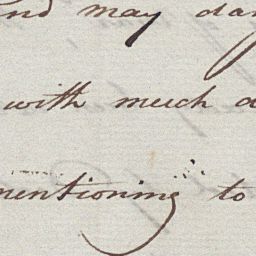 and may
with much
mentioning to